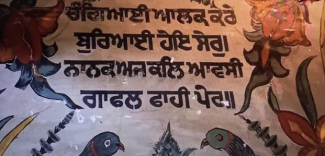 ਚੰਗਿਆਈ ਆਲਕੁ ਕਰੇ
ਬੁਰਿਆਈ ਹੋਇ ਸੇਰੁ॥
ਨਾਨਕ ਅਜ ਕਲਿ ਆਵਸੀ
ਗਾਫਲ ਫਾਹੀ ਪੇਰੁ॥